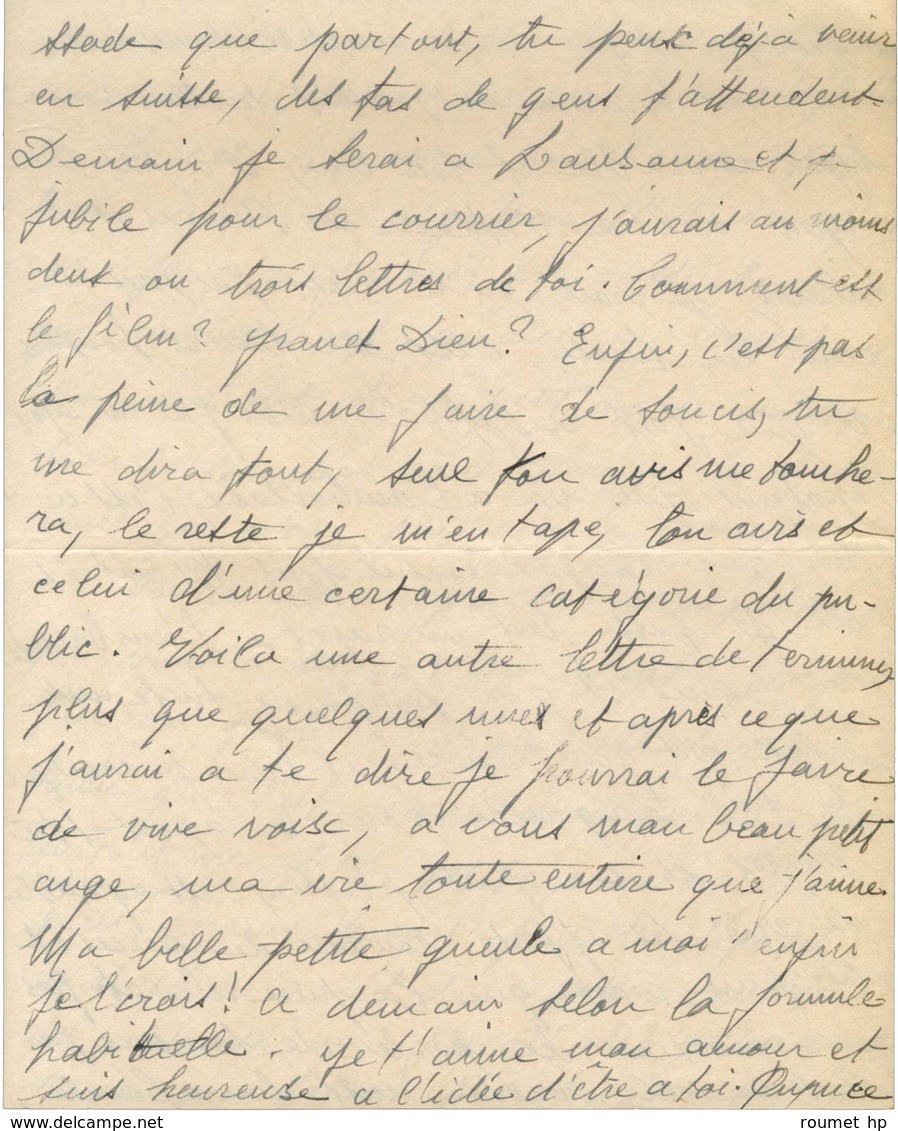 stade que partout, tu peux déjà venir
en suisse, des tas de gens t'attendent.
Demain je serai a Lausanne et je
jubile pour le courrier, j'aurais au moins
deux ou trois lettres de toi. Comment est
le film? grand Dieu? Enfin, c'est pas
la peine de me faire de soucis, tu
me dira tout, seul ton avis me touche-
ra, le reste je m'en tape, ton avis et
celui d'une certaine catégorie du pu-
blic. Voila une autre lettre de terminer,
plus que quelques unes et après ce que
j'aurai a te dire je pourrai le faire
de vive voix, a vous mon beau petit
ange, ma vie toute entière que j'aime.
Ma belle petite gueule a moi enfin
je l'crois! a demain selon la formule
habituelle. je t'aime mon amour et
suis heureuse a l'idée d'être a toi.
roumet hp